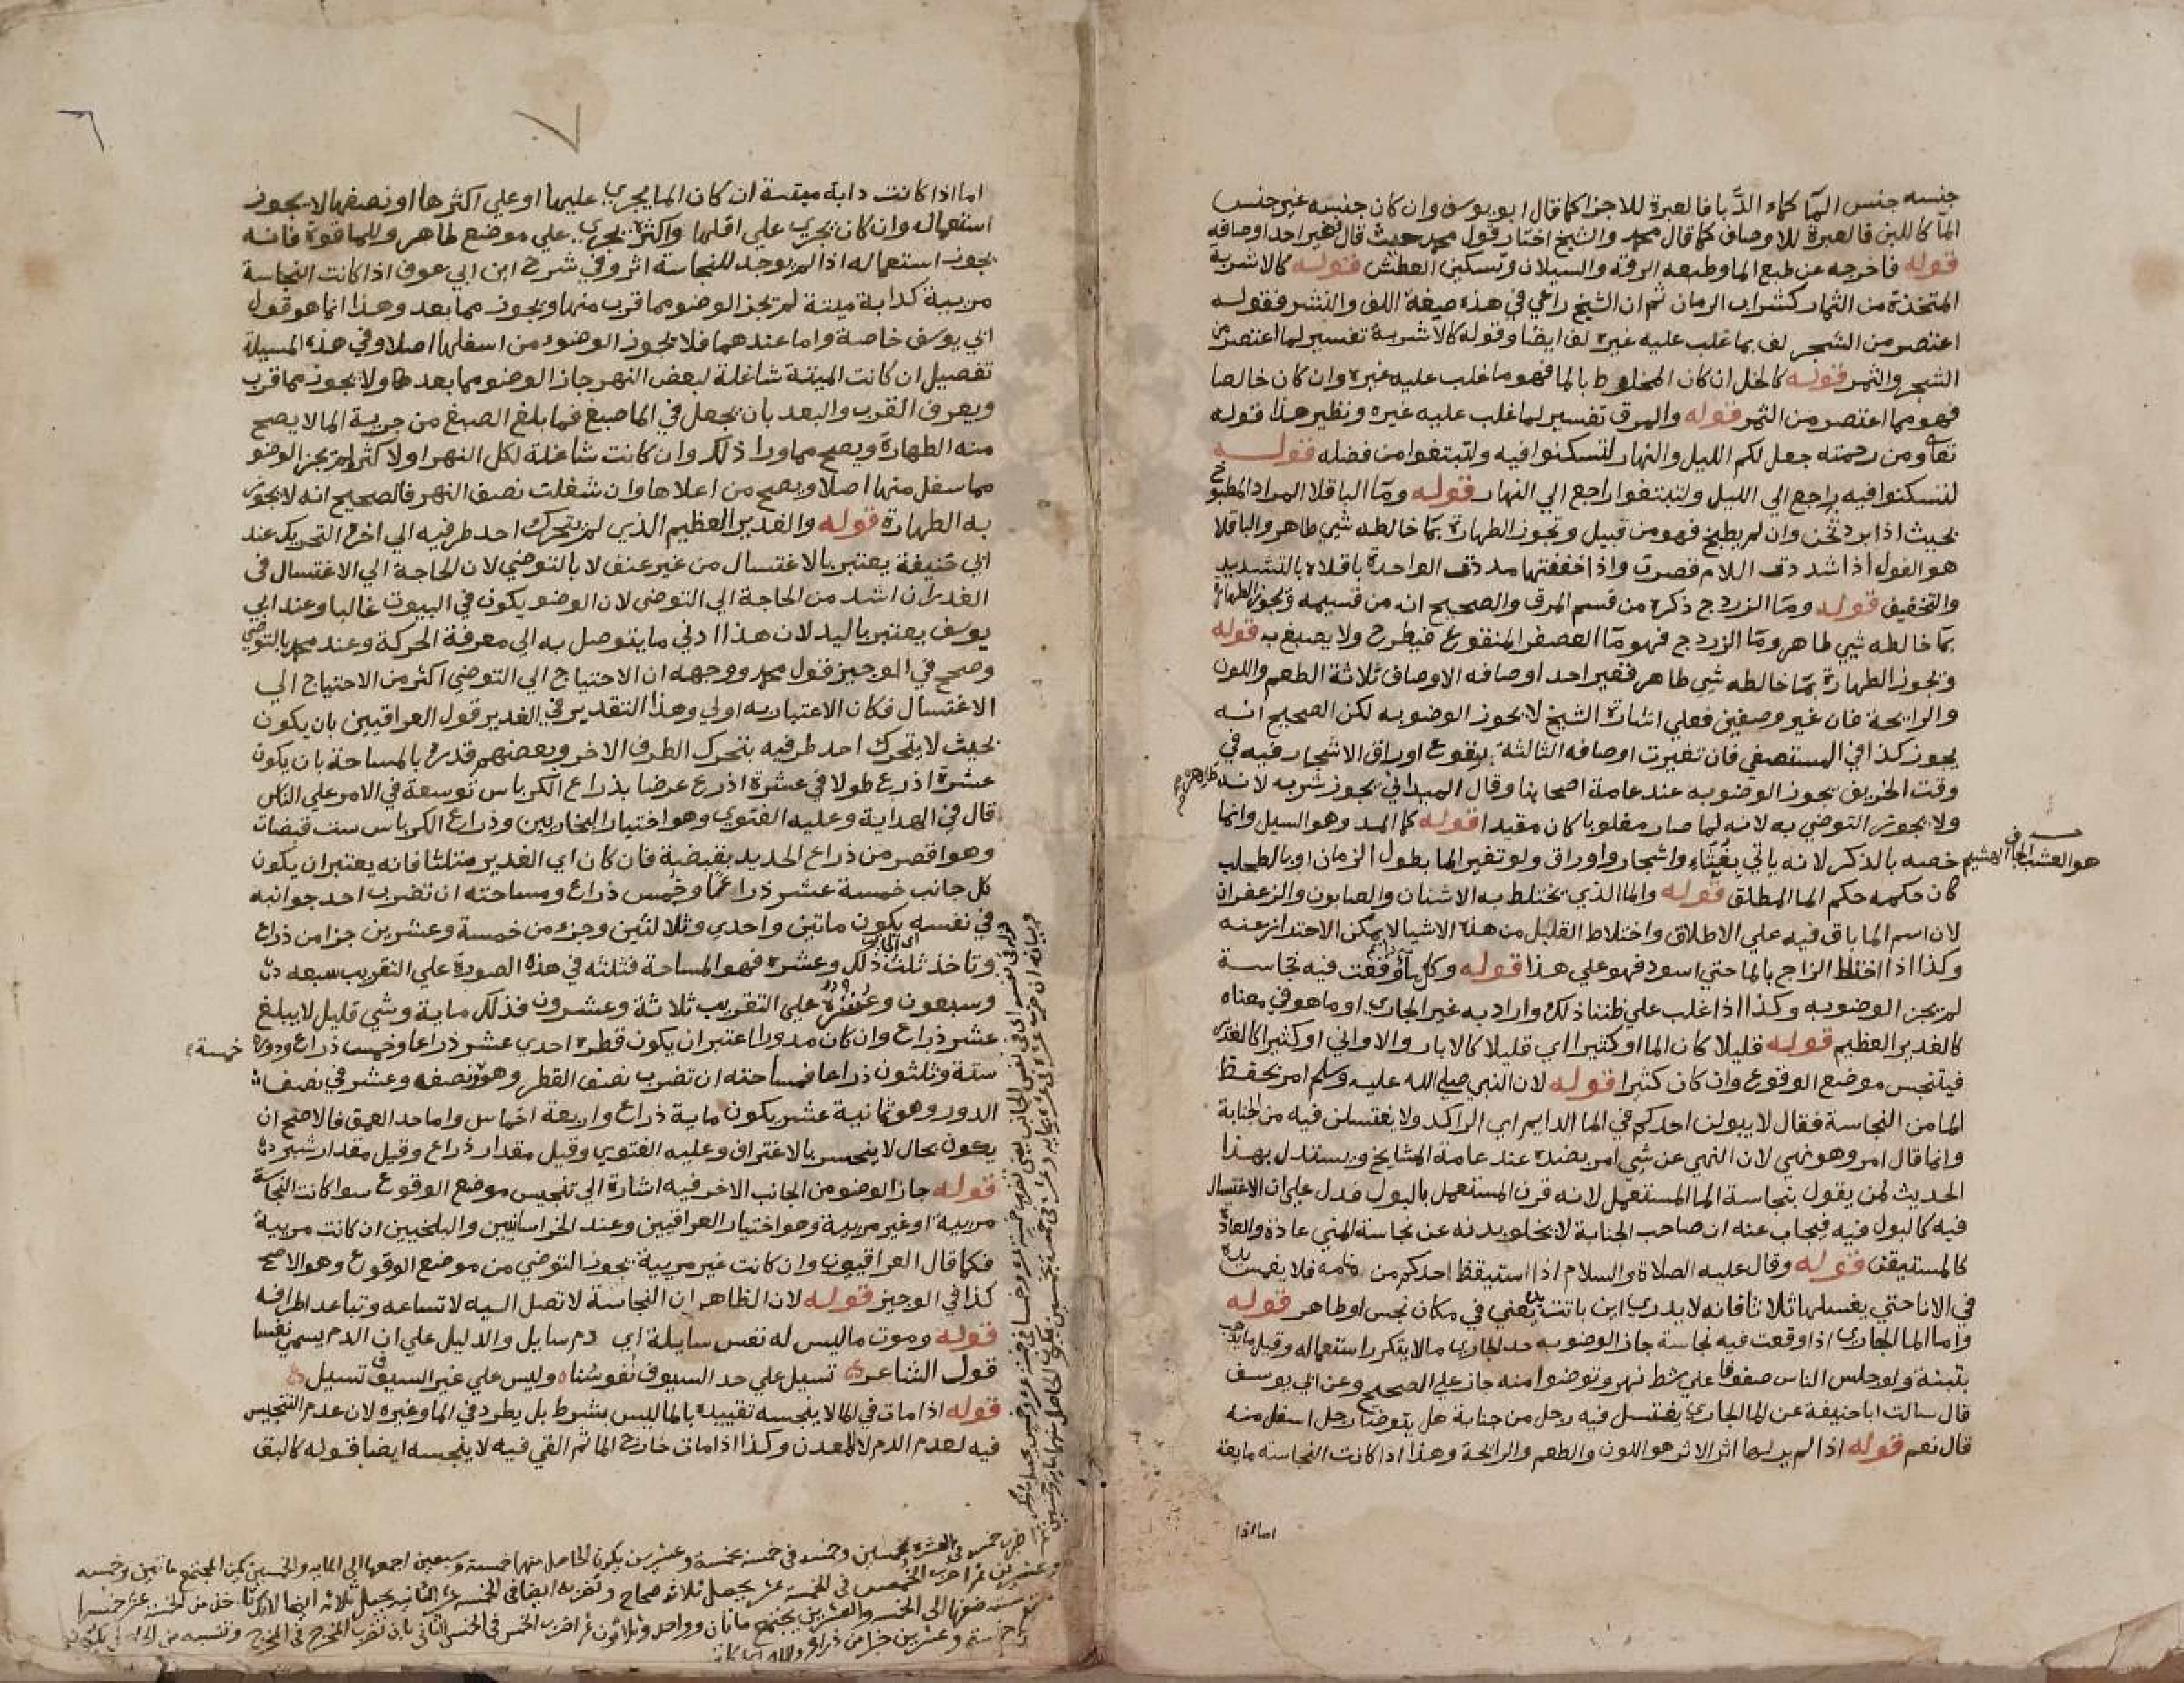 جنسه جنس الما كماء الدبا فالعبرة للاجزا كما قال ابو يوسف وان كان جنسه غير جنس
الما كاللبن فالعبرة للاوصاف كما قال محمد والشيخ اختار قول محمد حيث قال فغير احد اوصافه
قوله فاخرجه عن طبع الما وطبعه الرقه والسيلان وتسكين العطش قوله كالاشربة
المتخذة من الثمار كشراب الرمان ثم ان الشيخ راعي في هذه صيغة اللف والنشر فقوله
اعتصر من الشجر لف بما غلب عليه غيره لف ايضا وقوله كالاشربة تفسير لما اعتصر من
الشجر والثمر قوله كالخل ان كان المخلوط بالما فهو ما غلب عليه غيره وان كان خالصا
فهو مما اعتصر من الثمر قوله والمرق تفسير لما غلب عليه غيره ونظير هذا قوله
تعا ومن رحمته جعل لكم الليل والنهار لتسكنوا فيه ولتبتغوا من فضله قوله
لتسكنوا فيه راجع الي الليل ولتبتغوا راجع الي النهار قوله وما الباقلا المراد المطبوخ
بحيث اذا برد ثخن وان لم يطبخ فهو من قبيل وتجوز الطهارة بما خالطه شي طاهر والباقلا
هو الفول اذا شددت اللام قصرت واذا خففتها مددت الواحدة باقلاه بالتشديد
والتخفيف قوله وما الزردج ذكره من قسم المرق والصحيح انه من قسيمه وتجوز الطهارة
بما خالطه شي طاهر وما الزردج فهو ما العصفر المنقوع فيطرح ولا يصبغ به قوله
وتجوز الطهارة بما خالطه شي طاهر فغير احد اوصافه الاوصاف ثلاثة الطعم واللون
والرايحة فان غير وصفين فعلي اشارة الشيخ لا يجوز الوضو به لكن الصحيح انه
يجوز كذا في المستصفي فان تغيرت اوصافه الثالثة بوقوع اوراق الاشجار فيه في
وقت الخريف يجوز الوضو به عند عامة اصحابنا وقال الميداني يجوز شربه لانه طاهر
ولا يجوز التوضي به لانه لما صار مغلوبا كان مقيدا قوله كما المد وهو السيل وانما
خصه بالذكر لانه ياتي بغثاء واشجار واوراق ولو تغير الما بطول الزمان او بالطحلب
هو العشب الجاف الهشيم
كان حكمه حكم الما المطلق قوله والما الذي يختلط به الاشنان والصابون والزعفران
لان اسم الما باق فيه علي الاطلاق واختلاط القليل من هذه الاشيا لا يمكن الاحتراز عنه
وكذا اذا اختلط الزاج بالما حتي اسود فهو علي هذا قوله وكل ما وقعت فيه نجاسة
لم يجز الوضو به وكذا اذا غلب علي ظننا ذلك واراد به غير الجاري او ما هو في معناه
كالغدير العظيم قوله قليلا كان الما او كثيرا اي قليلا كالابار والاواني او كثيرا كالغدير
فيتنجس موضع الوقوع وان كان كثيرا قوله لان النبي صلي الله عليه وسلم امر بحفظ
الما من النجاسة فقال لا يبولن احدكم في الما الدايم اي الراكد ولا يغتسلن فيه من الجنابة
وانما قال امر وهو نهي لان النهي عن شي امر بضده عند عامة المشايخ ويستدل بهذا
الحديث لمن يقول بنجاسة الما المستعمل لانه قرن المستعمل بالبول فدل علي ان الاغتسال
فيه كالبول فيه فيجاب عنه ان صاحب الجنابة لا يخلو بدنه عن نجاسة المني عادة والعادة
كالمستيقن قوله وقال عليه الصلاة والسلام اذا استيقظ احدكم من منامه فلا يغمس يده
في الانا حتي يغسلها ثلاثا فانه لا يدري اين باتت يده يعني في مكان نجس او طاهر قوله
واما الما الجاري اذا وقعت فيه نجاسة جاز الوضو به حد الجاري مالا يتكرر استعماله وقيل ما يذهب
بتبنة ولو جلس الناس صفوفا علي شط نهر وتوضوا منه جاز علي الصحيح وعن ابي يوسف
قال سالت ابا حنيفة عن الما الجاري يغتسل فيه رجل من جنابة هل يتوضا رجل اسفل منه
قال نعم قوله اذا لم ير لها اثر الاثر هو اللون والطعم والرايحة وهذا اذا كانت النجاسة مايعة
اما اذا
٧
٦
اما اذا كانت دابة ميتسة ان كان الما يجري عليها او علي اكثرها او نصفها لا يجوز
استعماله وان كان يجري علي اقلها واكثره يجري علي موضع طاهر وللما قوة فانه
يجوز استعماله اذا لم يوجد للنجاسة اثر وفي شرح ابن ابي عوف اذا كانت النجاسة
مريية كدابة ميتة لم يجز الوضو مما قرب منها ويجوز مما بعد وهذا انما هو قول
ابي يوسف خاصة واما عندهما فلا يجوز الوضو من اسفلها اصلا وفي هذه المسيلة
تفصيل ان كانت الميتة شاغلة لبعض النهر جاز الوضو مما بعدها ولا يجوز مما قرب
ويعرف القرب والبعد بان يجعل في الما صبغ فما بلغ الصبغ من جرية الما لا يصح
منه الطهارة ويصح مما ورا ذلك وان كانت شاغلة لكل النهر او لاكثره لم يجز الوضو
مما سفل منها اصلا ويصح من اعلاها وان شغلت نصف النهر فالصحيح انه لا يجوز
به الطهارة قوله والغدير العظيم الذي لم يتحرك احد طرفيه الي اخره التحريك عند
ابي حنيفة يعتبر بالاغتسال من غير عنف لا بالتوضي لان الحاجة الي الاغتسال في
الغدران اشد من الحاجة الي التوضي لان الوضو يكون في البيوت غالبا وعند ابي
يوسف يعتبر باليد لان هذا ادني ما يتوصل به الي معرفة الحركة وعند محمد بالتوضي
وصحح في الوجيز قول محمد ووجهه ان الاحتياج الي التوضي اكثر من الاحتياج الي
الاغتسال فكان الاعتبار به اولي وهذا التقدير في الغدير قول العراقيين بان يكون
بحيث لا يتحرك احد طرفيه بتحرك الطرف الاخر وبعضهم قدره بالمساحة بان يكون
عشرة اذرع طولا في عشرة اذرع عرضا بذراع الكرباس توسعة في الامر علي الناس
قال في الهداية وعليه الفتوي وهو اختيار البخاريين وذراع الكرباس ست قبضات
وهو اقصر من ذراع الحديد بقبضة فان كان اي الغدير مثلثا فانه يعتبر ان يكون
كل جانب خمسة عشر ذراعا وخمس ذراع ومساحته ان تضرب احد جوانبه
في نفسه يكون ماتين واحدي وثلاثين وجزء من خمسة وعشرين جزا من ذراع
وتاخذ ثلث ذلك وعشره فهو المساحة فثلثه في هذه الصورة علي التقريب سبعه
وسبعون وعشره علي التقريب ثلاثة وعشرون فذلك ماية وشي قليل لا يبلغ
عشر ذراع وان كان مدورا اعتبر ان يكون قطره احدي عشر ذراعا وخمس ذراع ودوره
خمسة
ستة وثلثون ذراعا فمساحته ان تضرب نصف القطر وهو نصفه وعشر في نصف
الدور وهو ثمانية عشر يكون ماية ذراع واربعة اخماس واما حد العمق فالاصح ان
يكون بحال لا ينحسر بالاغتراف وعليه الفتوي وقيل مقدار ذراع وقيل مقدار شبر
قوله جاز الوضو من الجانب الاخر فيه اشارة الي تنجيس موضع الوقوع سوا كانت النجاسة
مريية او غير مريية وهو اختيار العراقيين وعند الخراسانيين والبلخيين ان كانت مريية
فكما قال العراقيون وان كانت غير مريية يجوز التوضي من موضع الوقوع وهو الاصح
كذا في الوجيز قوله لان الظاهر ان النجاسة لا تصل اليه لاتساعه وتباعد اطرافه
قوله وموت ما ليس له نفس سايلة اي دم سايل والدليل علي ان الدم يسمي نفسا
قول الشاعر تسيل علي حد السيوف نفوسنا وليس علي غير السيوف تسيل
قوله اذا مات في الما لا ينجسه تقييده بالما ليس بشرط بل يطرد في الما وغيره لان عدم التنجيس
فيه لعدم الدم لا للمعدن وكذا اذا مات خارج الما ثم القي فيه لا ينجسه ايضا قوله كالبق